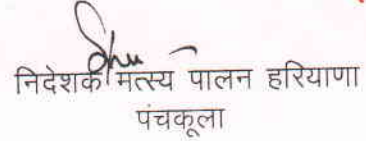 निदेशक मत्स्य पालन हरियाणा
पंचकूला